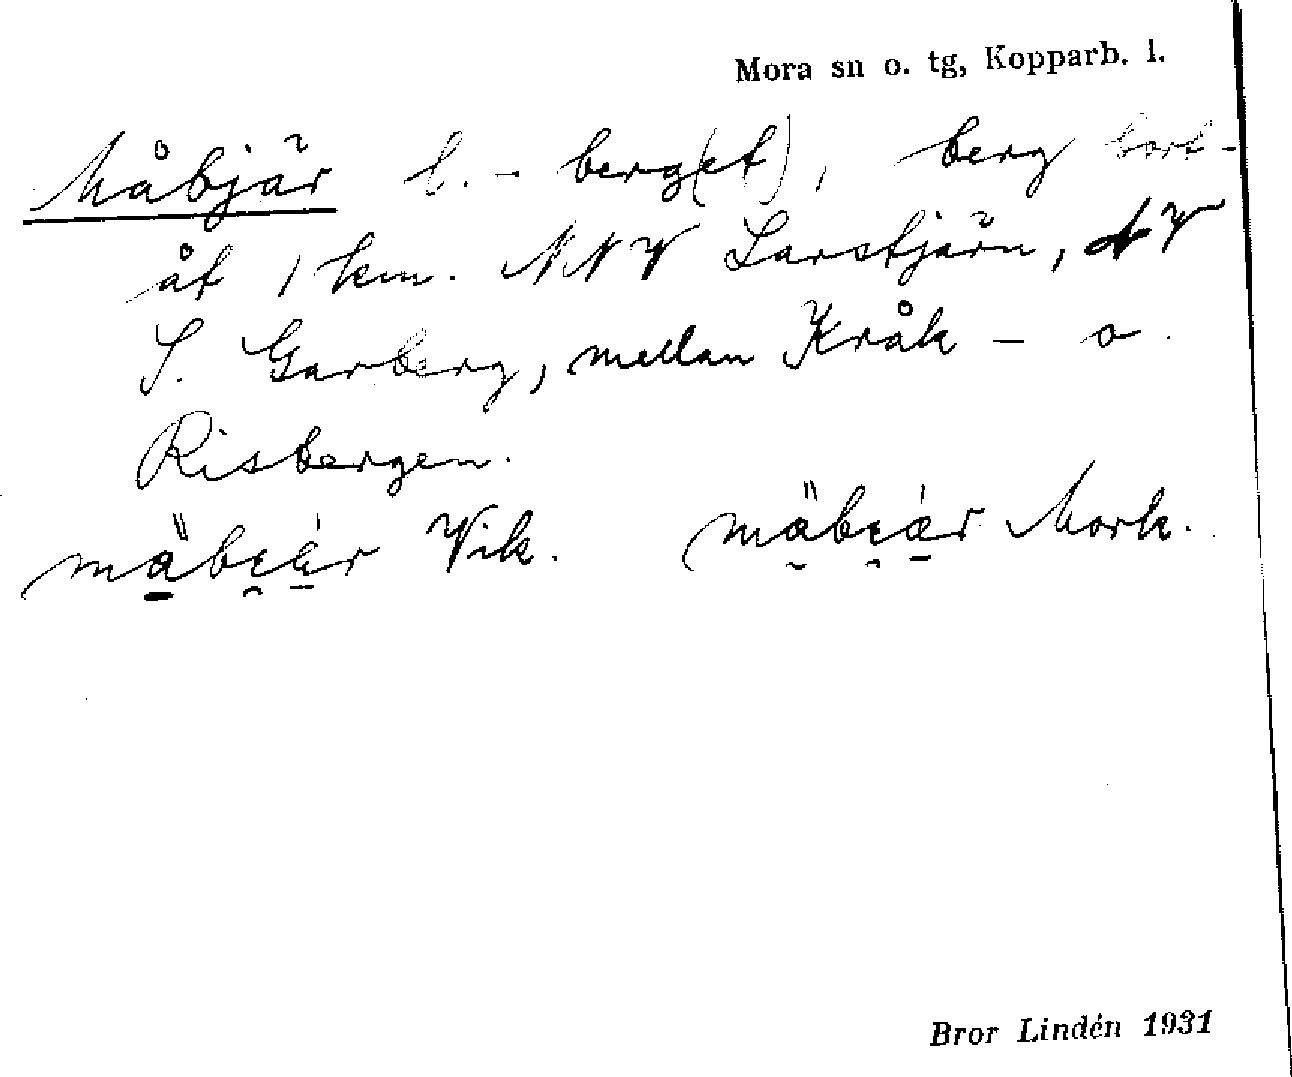 Mora sn o. tg, Kopparb. l.
Måbjär l. - berg(et), berg bort-
åt 1 km. NNV Larstjärn, NV
S. Garberg, mellan Kråk - o.
Risbergen.
Vik. Mork.
Bror Lindén 1931